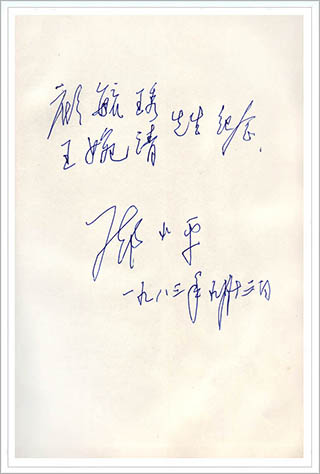 顾毓琇 先生 纪念.
王婉清
邓小平
一九八三年九月十三日